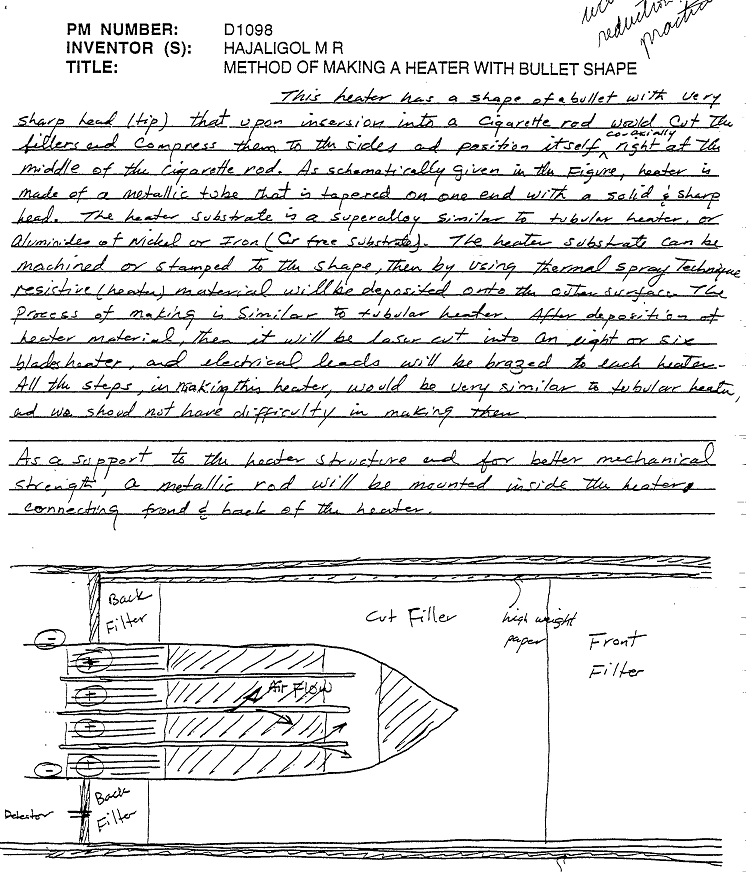 reduction
PM NUMBER: D1098
INVENTOR (S): HAJALIGOL M R
TITLE: METHOD OF MAKING A HEATER WITH BULLET SHAPE
This heater has a shape of a bullet with very
sharp head (tip) that upon insersion into a Cigarette rod would Cut the
fillers and Compress them to the sides ad position itself coaxially right at the
middle of the Cigarette rod. As schematically given in the Figure, heater is
made of a metallic tube that is tapered on one end with a solid & sharp
head. The heater substrate is a superalloy similar to tubular heater, or
Aluminides of Nickel or Iron (Cr free substrate). The heater substrate can be
machined or stamped to the shape, then by using thermal spray Technique
resistive (heater) material will be deposited onto the outer surface. The
Process of making is Similar to tubular heater. After deposition of
heater material, then it will be laser cut into an eight or six
blades heater, and electrical leads will be brazed to each heater.
All the steps, in making this heater, would be very similar to tubular heater,
ad we shoud not have difficulty in making them
As a support to the heater structure and for better mechanical
strength, a metallic rod will be mounted inside the heater,
connecting frond & back of the heater.
Back
Filter
Cut Filler
high weight
paper
Front
Filter
Air Flow
Back
Filter
Detector